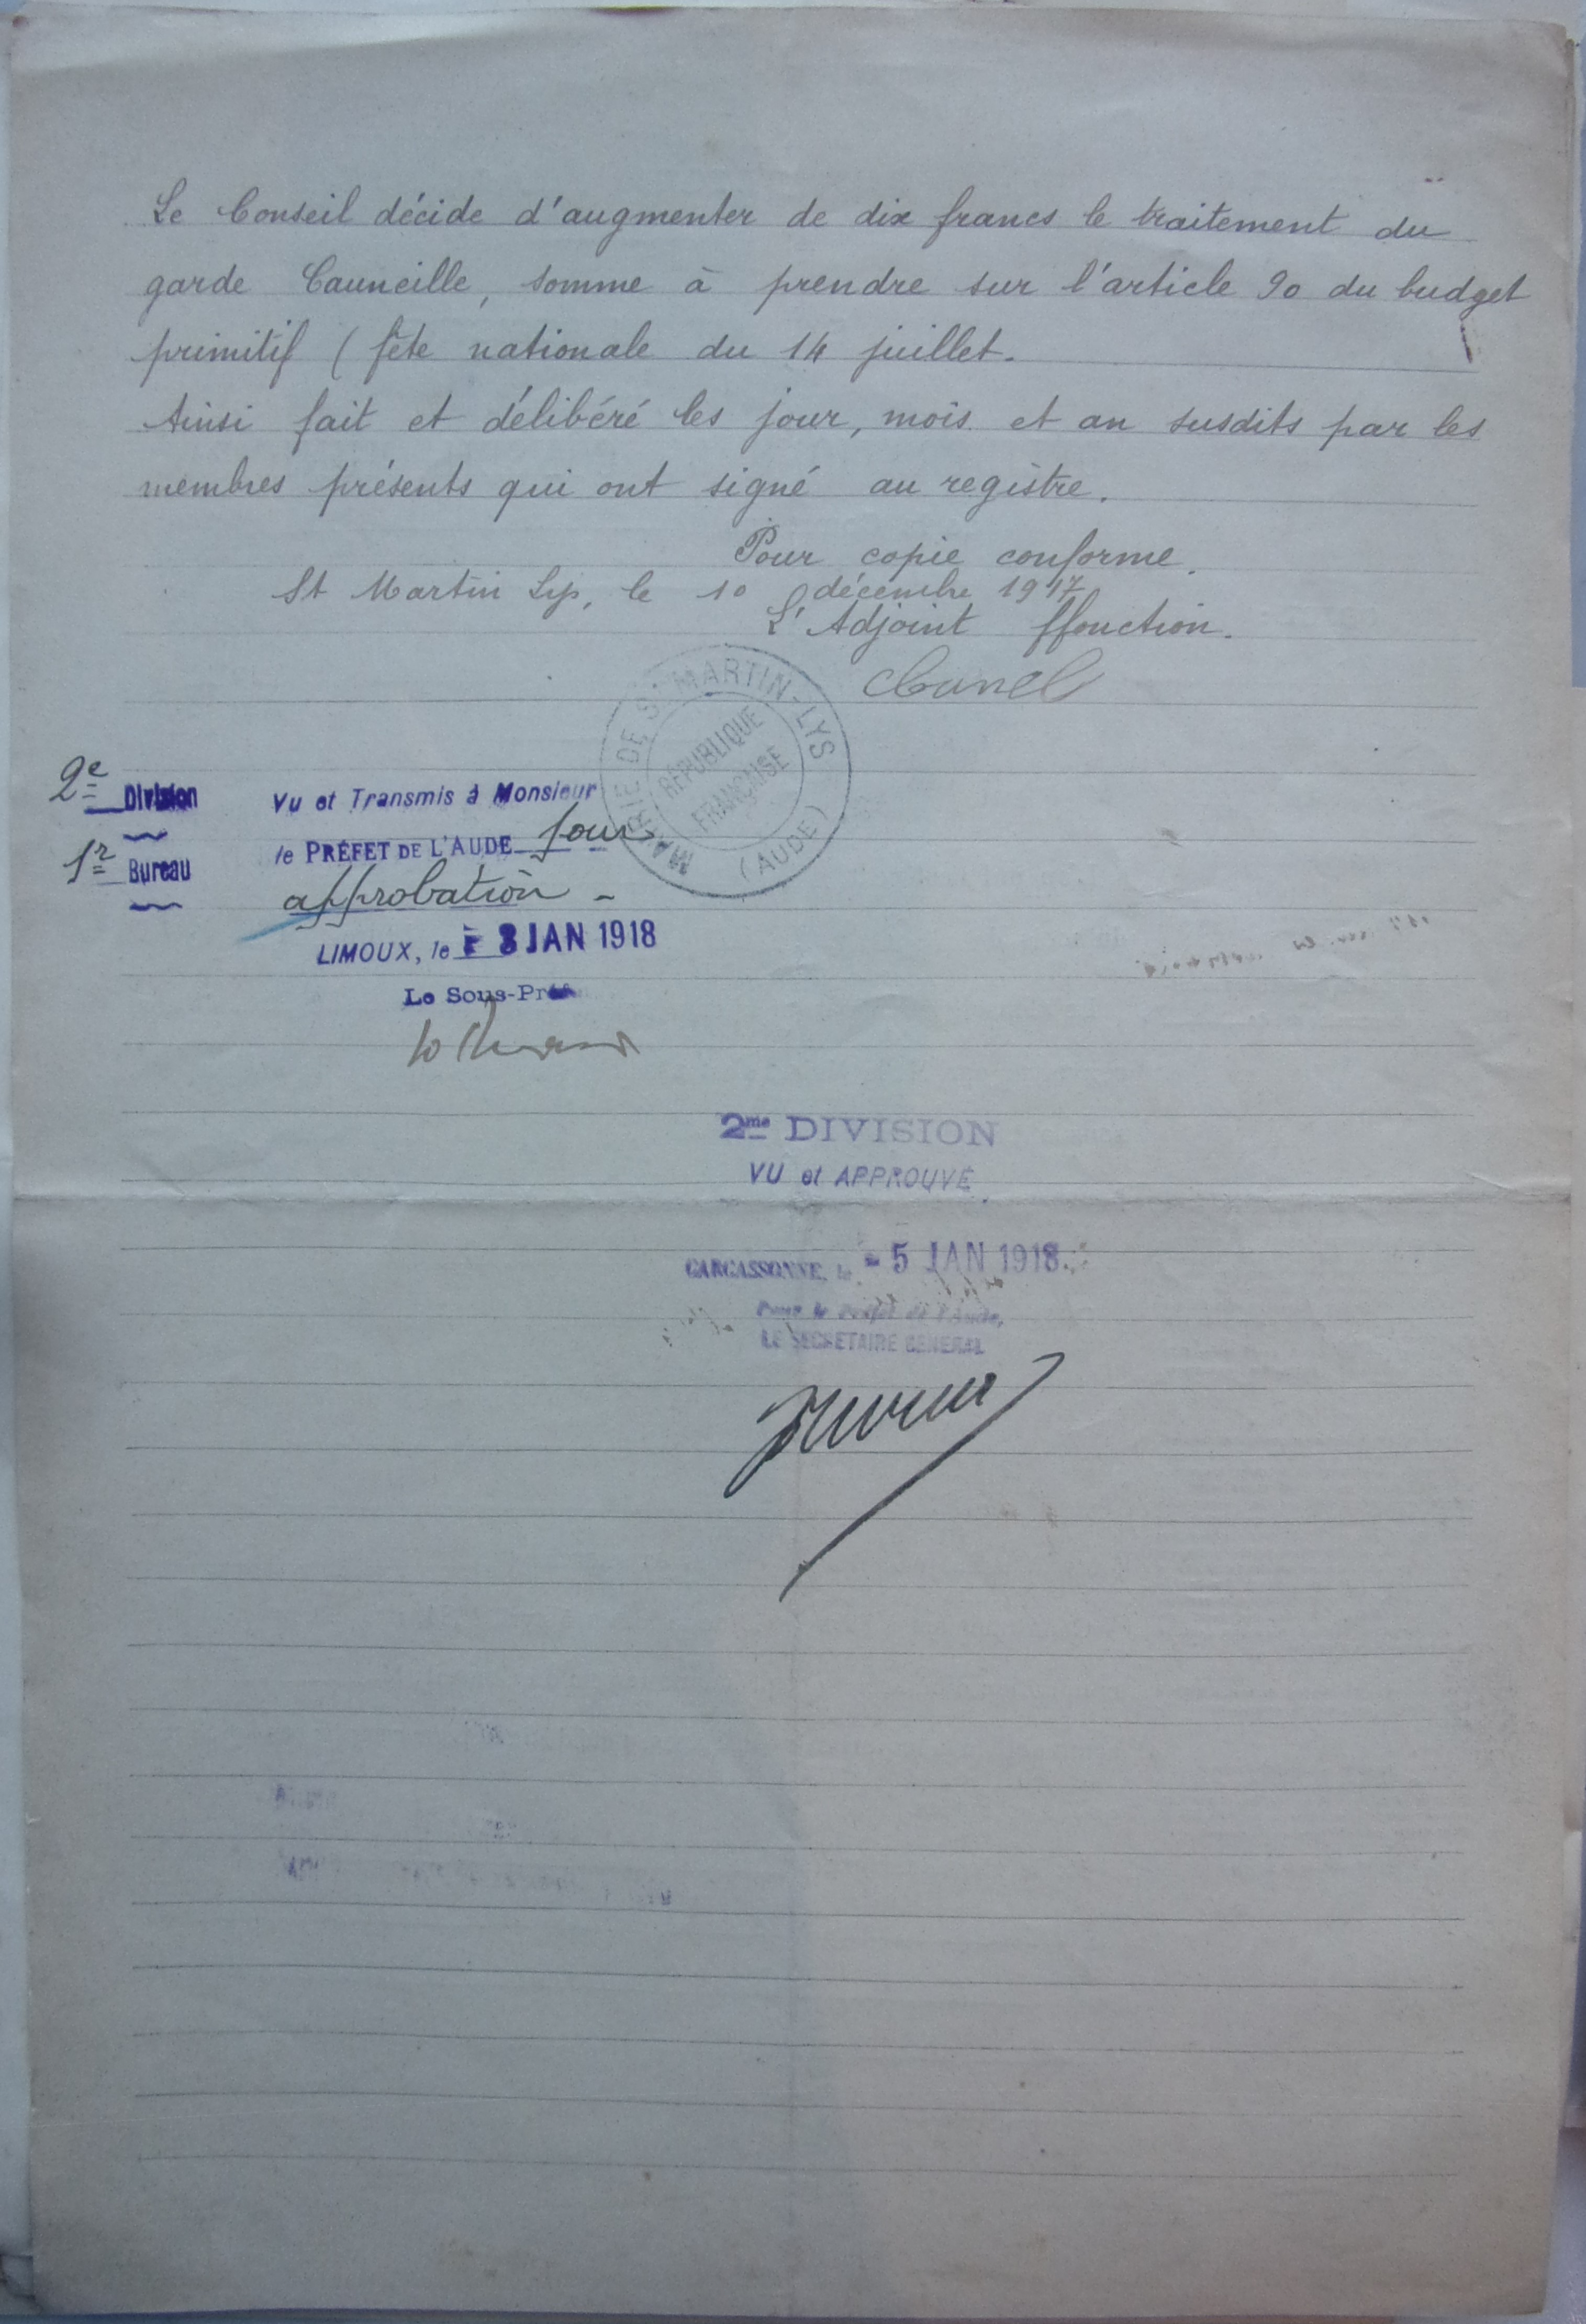 Le Conseil décide d'augmenter de dix francs le traitement du
garde Cauneille, somme à prendre sur l'article 90 du budget
primitif ( fête nationale du 14 juillet.
Ainsi fait et délibéré les jour, mois et an susdits par les
membres présents qui ont signé au registre.
Pour copie conforme.
St Martin Lys, le 10 décembre 1917
L'Adjoint ffonction.
MAIRIE DE ST MARTIN-LYS
RÉPUBLIQUE
FRANÇAISE
(AUDE)
2e Division
1r Bureau
Vu et Transmis à Monsieur
le PRÉFET DE L'AUDE pour
approbation -
LIMOUX, le - 3 JAN 1918
Le Sous-Préf
2me DIVISION
VU et APPROUVÉ
CARCASSONNE, le - 5 JAN 1918
Pour le Préfet de l'Aude,
LE SECRETAIRE GENERAL